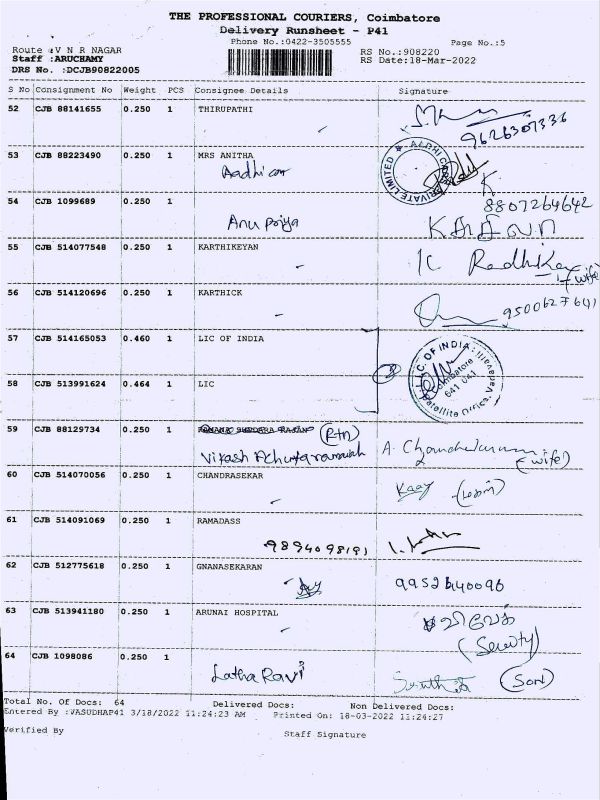 THE PROFESSIONAL COURIERS, Coimbatore
Delivery Runsheet - P41
Phone No.:0422-3505555 Page No.:5
Route :V N R NAGAR RS No.:908220
Staff :ARUCHAMY RS Date:18-Mar-2022
DRS No. :DCJB90822005
S No Consignment No Weight PCS Consignee Details Signature
52 CJB 88141655 0.250 1 THIRUPATHI
9626307336
53 CJB 88223490 0.250 1 MRS ANITHA
Aadhi
PRIVATE LIMITED
54 CJB 1099689 0.250 1 8807264642
Anu Priya
55 CJB 514077548 0.250 1 KARTHIKEYAN K Radhika
(wife)
56 CJB 514120696 0.250 1 KARTHICK 9500627641
57 CJB 514165053 0.460 1 LIC OF INDIA
L.I.C. OF INDIA
Coimbatore
641 041
Satellite Office, Vadavalli
58 CJB 513991624 0.464 1 LIC
59 CJB 88129734 0.250 1 (Rtn)
Vikash A. (wife)
60 CJB 514070056 0.250 1 CHANDRASEKAR
61 CJB 514091069 0.250 1 RAMADASS
9894098191
62 CJB 512775618 0.250 1 GNANASEKARAN 9952640096
63 CJB 513941180 0.250 1 ARUNAI HOSPITAL
64 CJB 1098086 0.250 1
Latha Ravi (Son)
Total No. Of Docs: 64 Delivered Docs: Non Delivered Docs:
Entered By :VASUDHAP41 3/18/2022 11:24:23 AM Printed On: 18-03-2022 11:24:27
Verified By Staff Signature